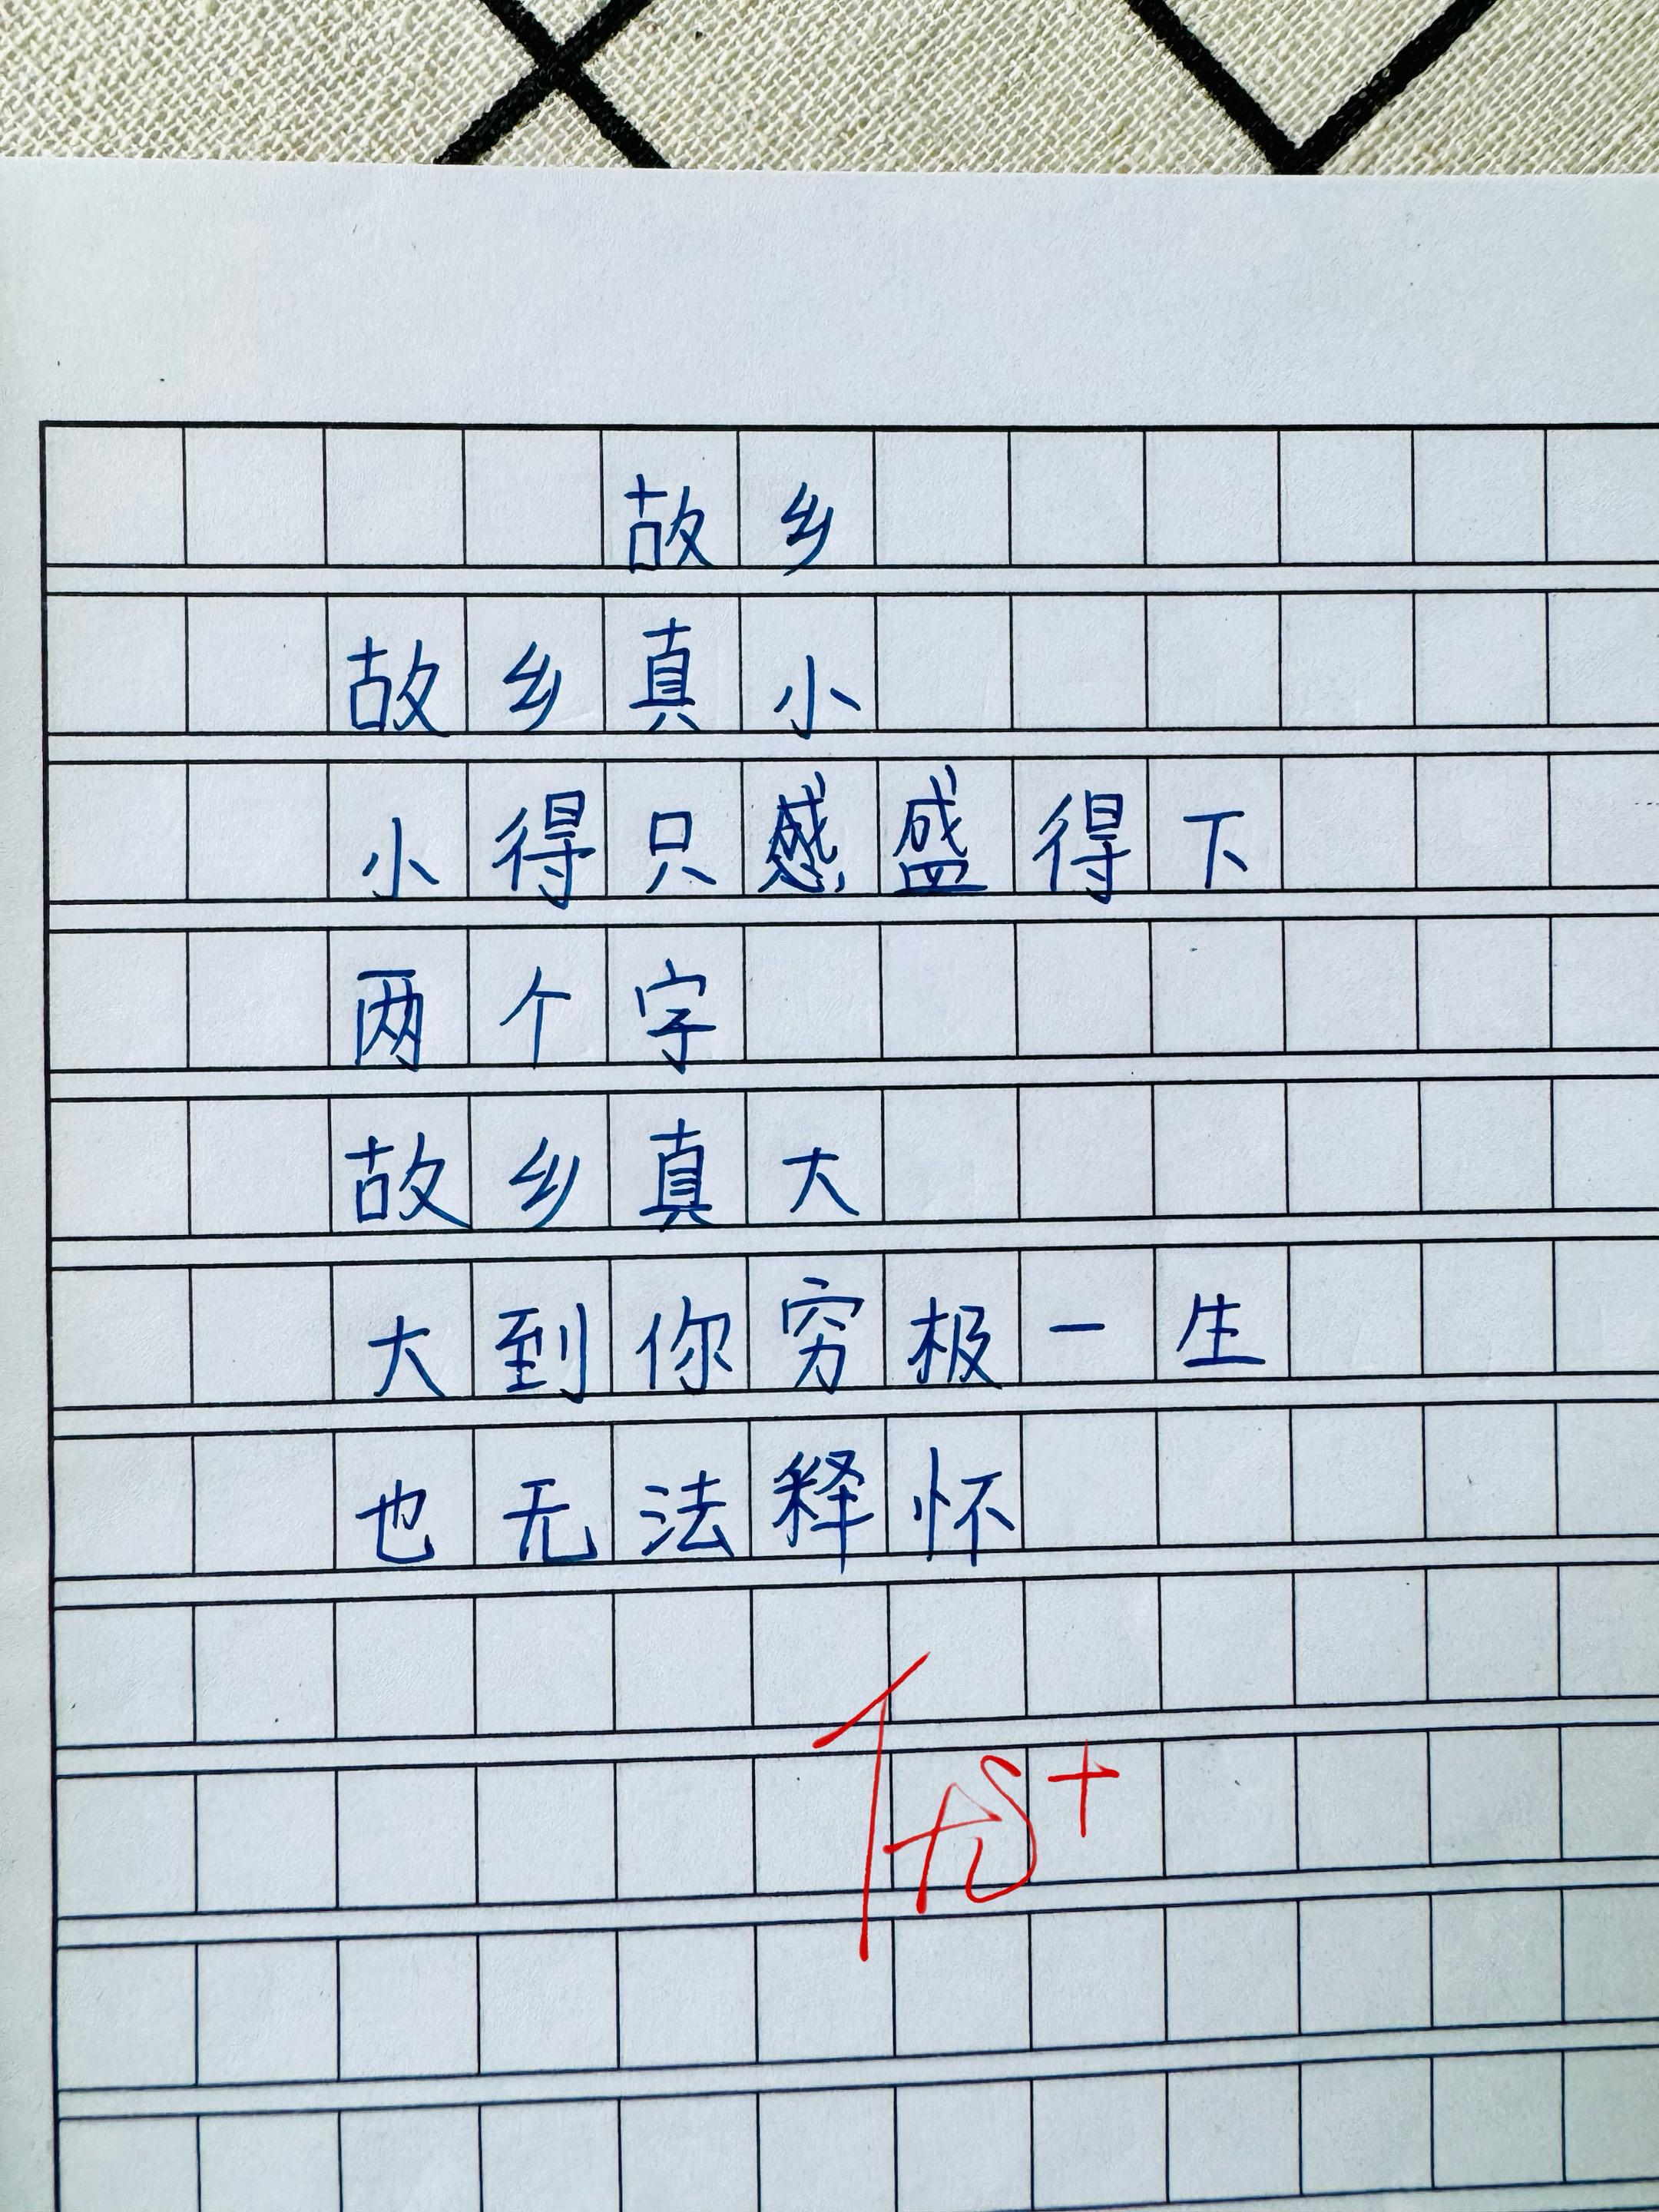 故乡
故乡真小
小得只感盛得下
两个字
故乡真大
大到你穷极一生
也无法释怀
优+